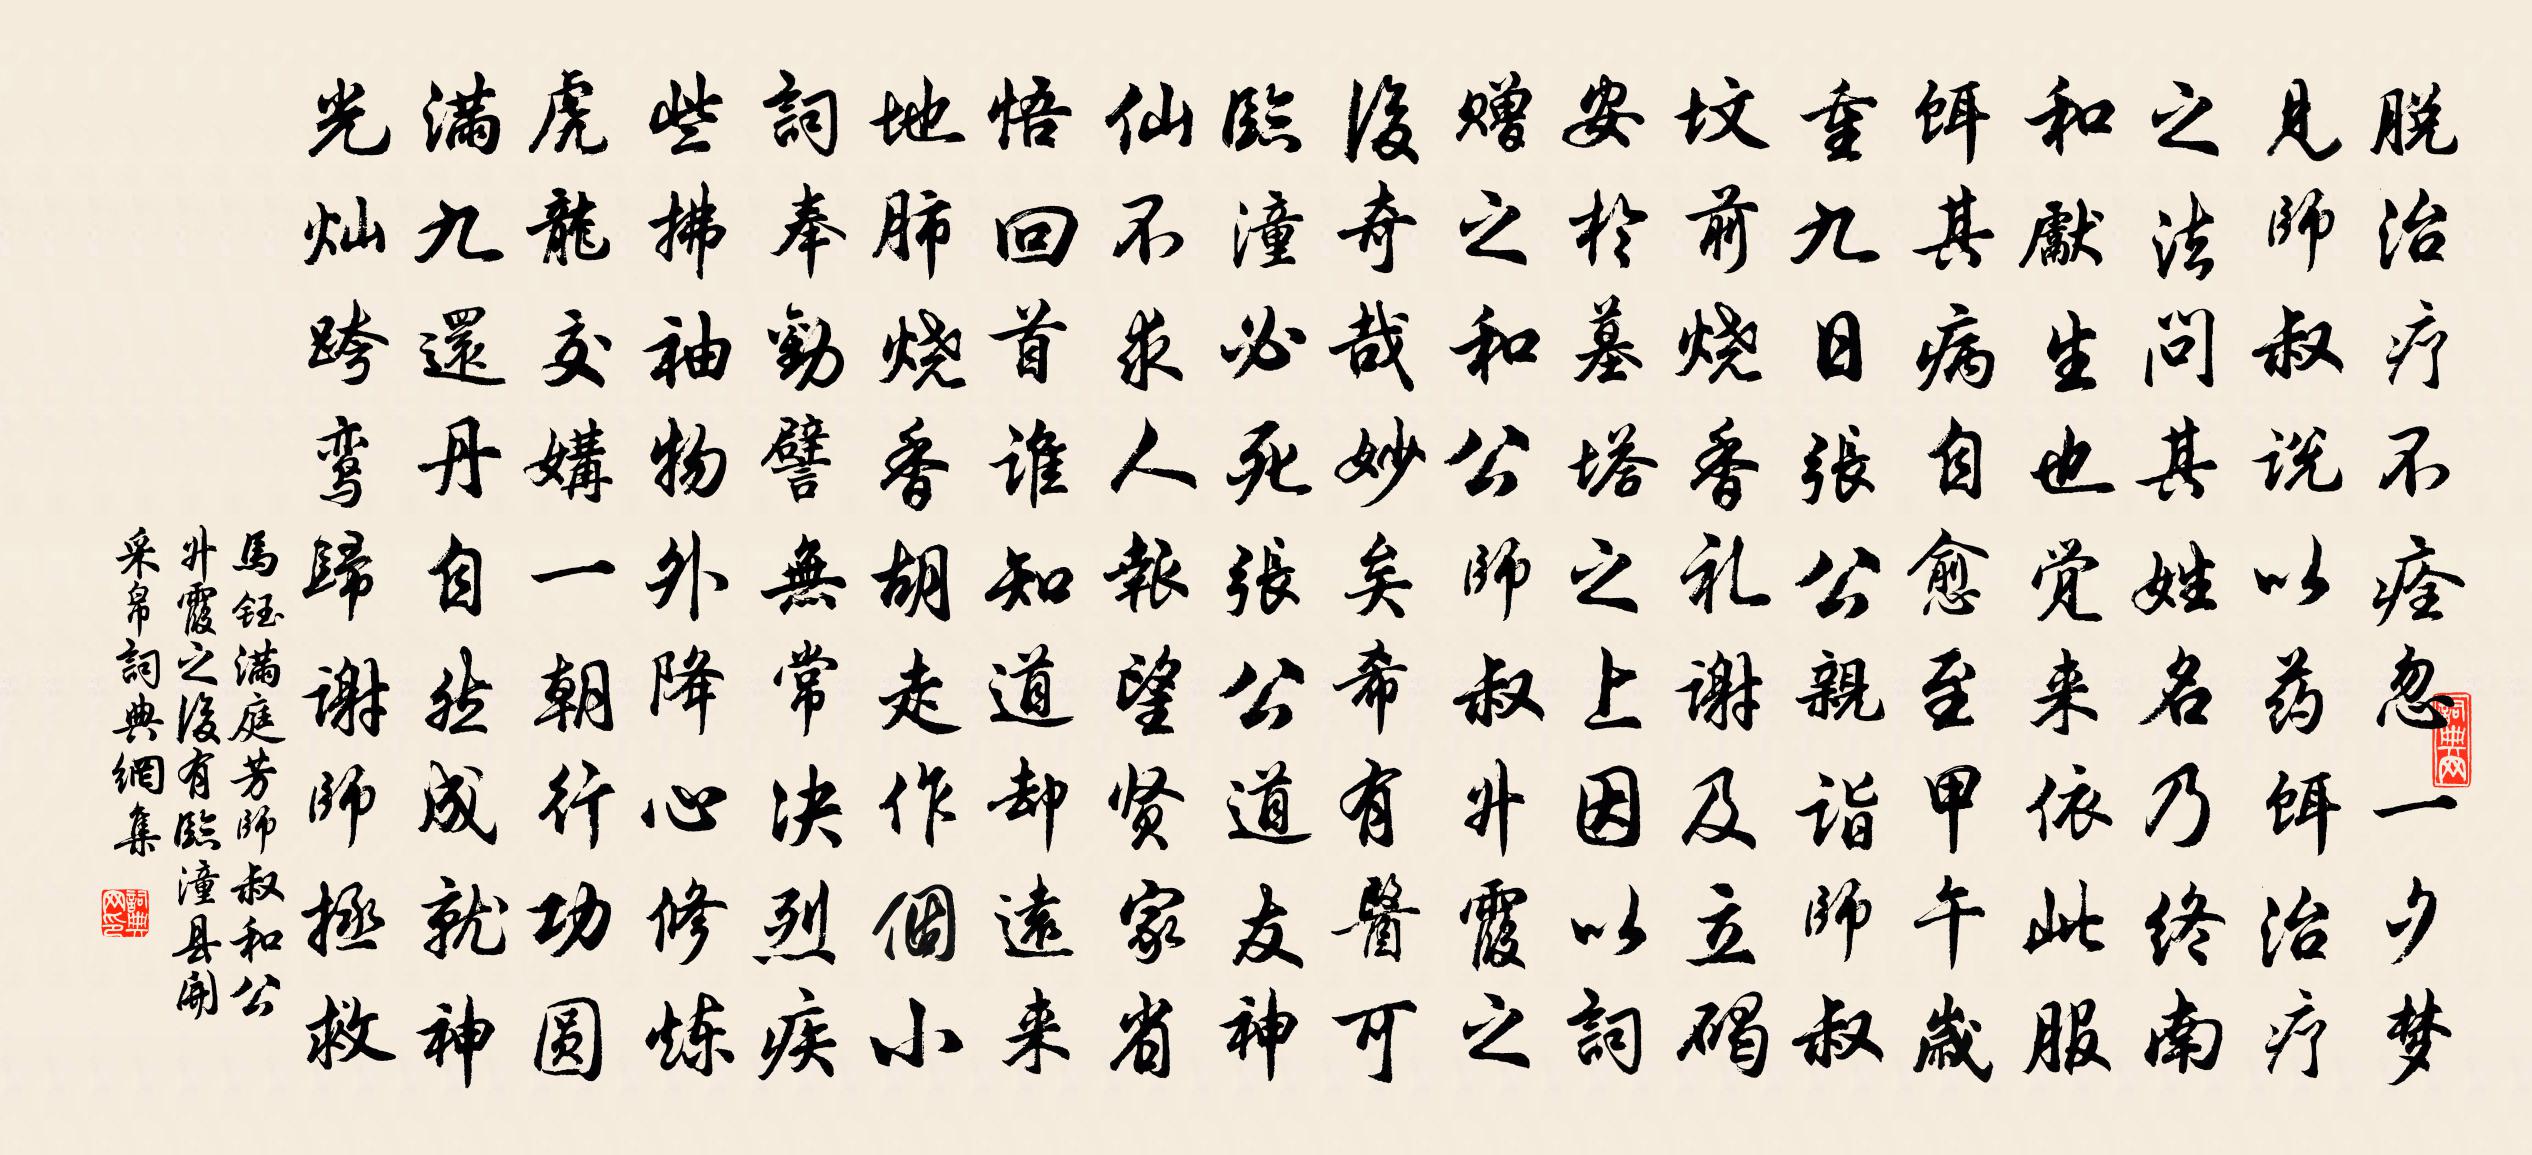 脱治疗不痊忽一夕梦
见師叔说以药饵治疗
之法问其姓名乃终南
和獻生也觉来依此服
饵其病自愈至甲午歲
重九日張公親诣師叔
坟前烧香礼谢及立碣
安於墓塔之上因以詞
赠之和公師叔升霞之
後奇哉妙矣希有醫可
臨潼必死張公道友神
仙不求人報望贤家省
悟回首谁知道却遠来
地肺烧香胡走作個小
詞奉勸譬無常决烈疾
些拂袖物外降心修炼
虎龍交媾一朝行功圆
满九還丹自然成就神
光灿跨鸾歸谢師拯救
馬钰满庭芳師叔和公
升霞之後有臨潼县開
采帛詞典網集
詞典网
詞典网印